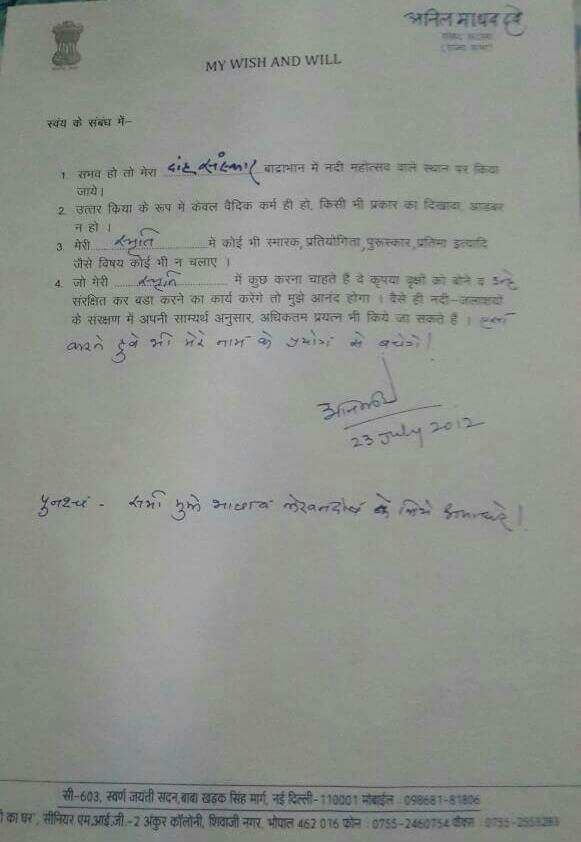 अनिल माधव दवे
संसद सदस्य
(राज्य सभा)
MY WISH AND WILL
स्वंय के संबंध में–
1. संभव हो तो मेरा दाह संस्कार बांद्राभान में नदी महोत्सव वाले स्थान पर किया
जाये।
2. उत्तर किया के रूप में केवल वैदिक कर्म ही हो, किसी भी प्रकार का दिखावा, आडंबर
न हो ।
3. मेरी स्मृति में कोई भी स्मारक, प्रतियोगिता, पुरूस्कार, प्रतिमा इत्यादि
जैसे विषय कोई भी न चलाए ।
4. जो मेरी स्मृति में कुछ करना चाहते है वे कृपया वृक्षों को बोने व उन्हे
संरक्षित कर बडा करने का कार्य करेंगे तो मुझे आनंद होगा । वैसे ही नदी–जलाशयो
के संरक्षण में अपनी सामर्थ्य अनुसार, अधिकतम प्रयत्न भी किये जा सकते है । ऐसा
करते हुवे भी मेरे नाम के प्रयोग से बचेगें!
23 July 2012
पुनश्चं - सभी मुझे भाषा व लेखनदोष के लिये क्षमा करे!
सी–603, स्वर्ण जयंती सदन, बाबा खडक सिंह मार्ग, नई दिल्ली–110001 मोबाईल : 098681-81806
का घर', सीनियर एम.आई.जी.–2 अंकुर कॉलोनी, शिवाजी नगर, भोपाल 462 016 फोन : 0755-2460754 फैक्स :